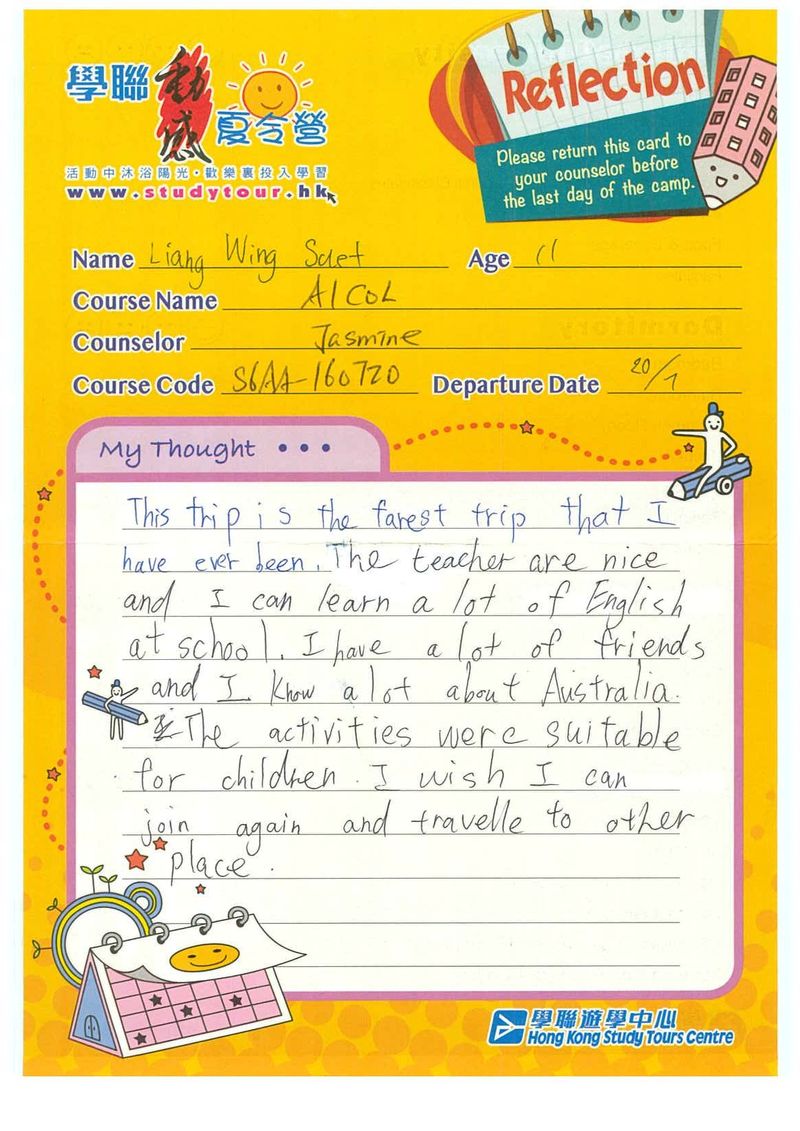 學聯 動感 夏令營
活動中沐浴陽光·歡樂裏投入學習
www.studytour.hk
Reflection
Please return this card to
your counselor before
the last day of the camp.
Name Liang Wing Suet Age 11
Course Name AICOL
Counselor Jasmine
Course Code S6AA-160720 Departure Date 20/7
My Thought • • •
This trip is the farest trip that I
have ever been. The teacher are nice
and I can learn a lot of English
at school. I have a lot of friends
and I know a lot about Australia.
The activities were suitable
for children. I wish I can
join again and travelle to other
place.
學聯遊學中心
Hong Kong Study Tours Centre